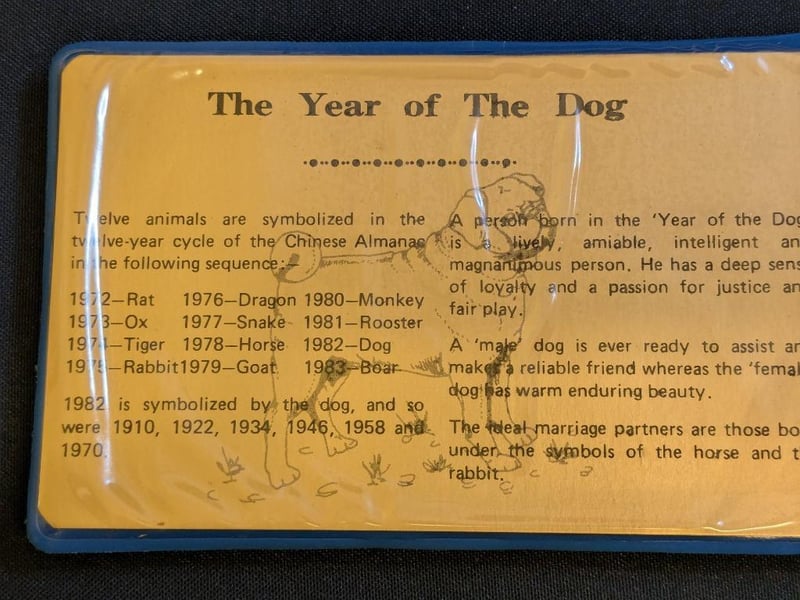 The Year of The Dog
Twelve animals are symbolized in the
twelve-year cycle of the Chinese Almanac
in the following sequence:—
1972—Rat 1976—Dragon 1980—Monkey
1973—Ox 1977—Snake 1981—Rooster
1974—Tiger 1978—Horse 1982—Dog
1975—Rabbit 1979—Goat 1983—Boar
1982 is symbolized by the dog, and so
were 1910, 1922, 1934, 1946, 1958 and
1970.
A person born in the 'Year of the Dog
is a lively, amiable, intelligent an
magnanimous person. He has a deep sens
of loyalty and a passion for justice an
fair play.
A 'male' dog is ever ready to assist an
makes a reliable friend whereas the 'femal
dog has warm enduring beauty.
The ideal marriage partners are those bo
under the symbols of the horse and t
rabbit.